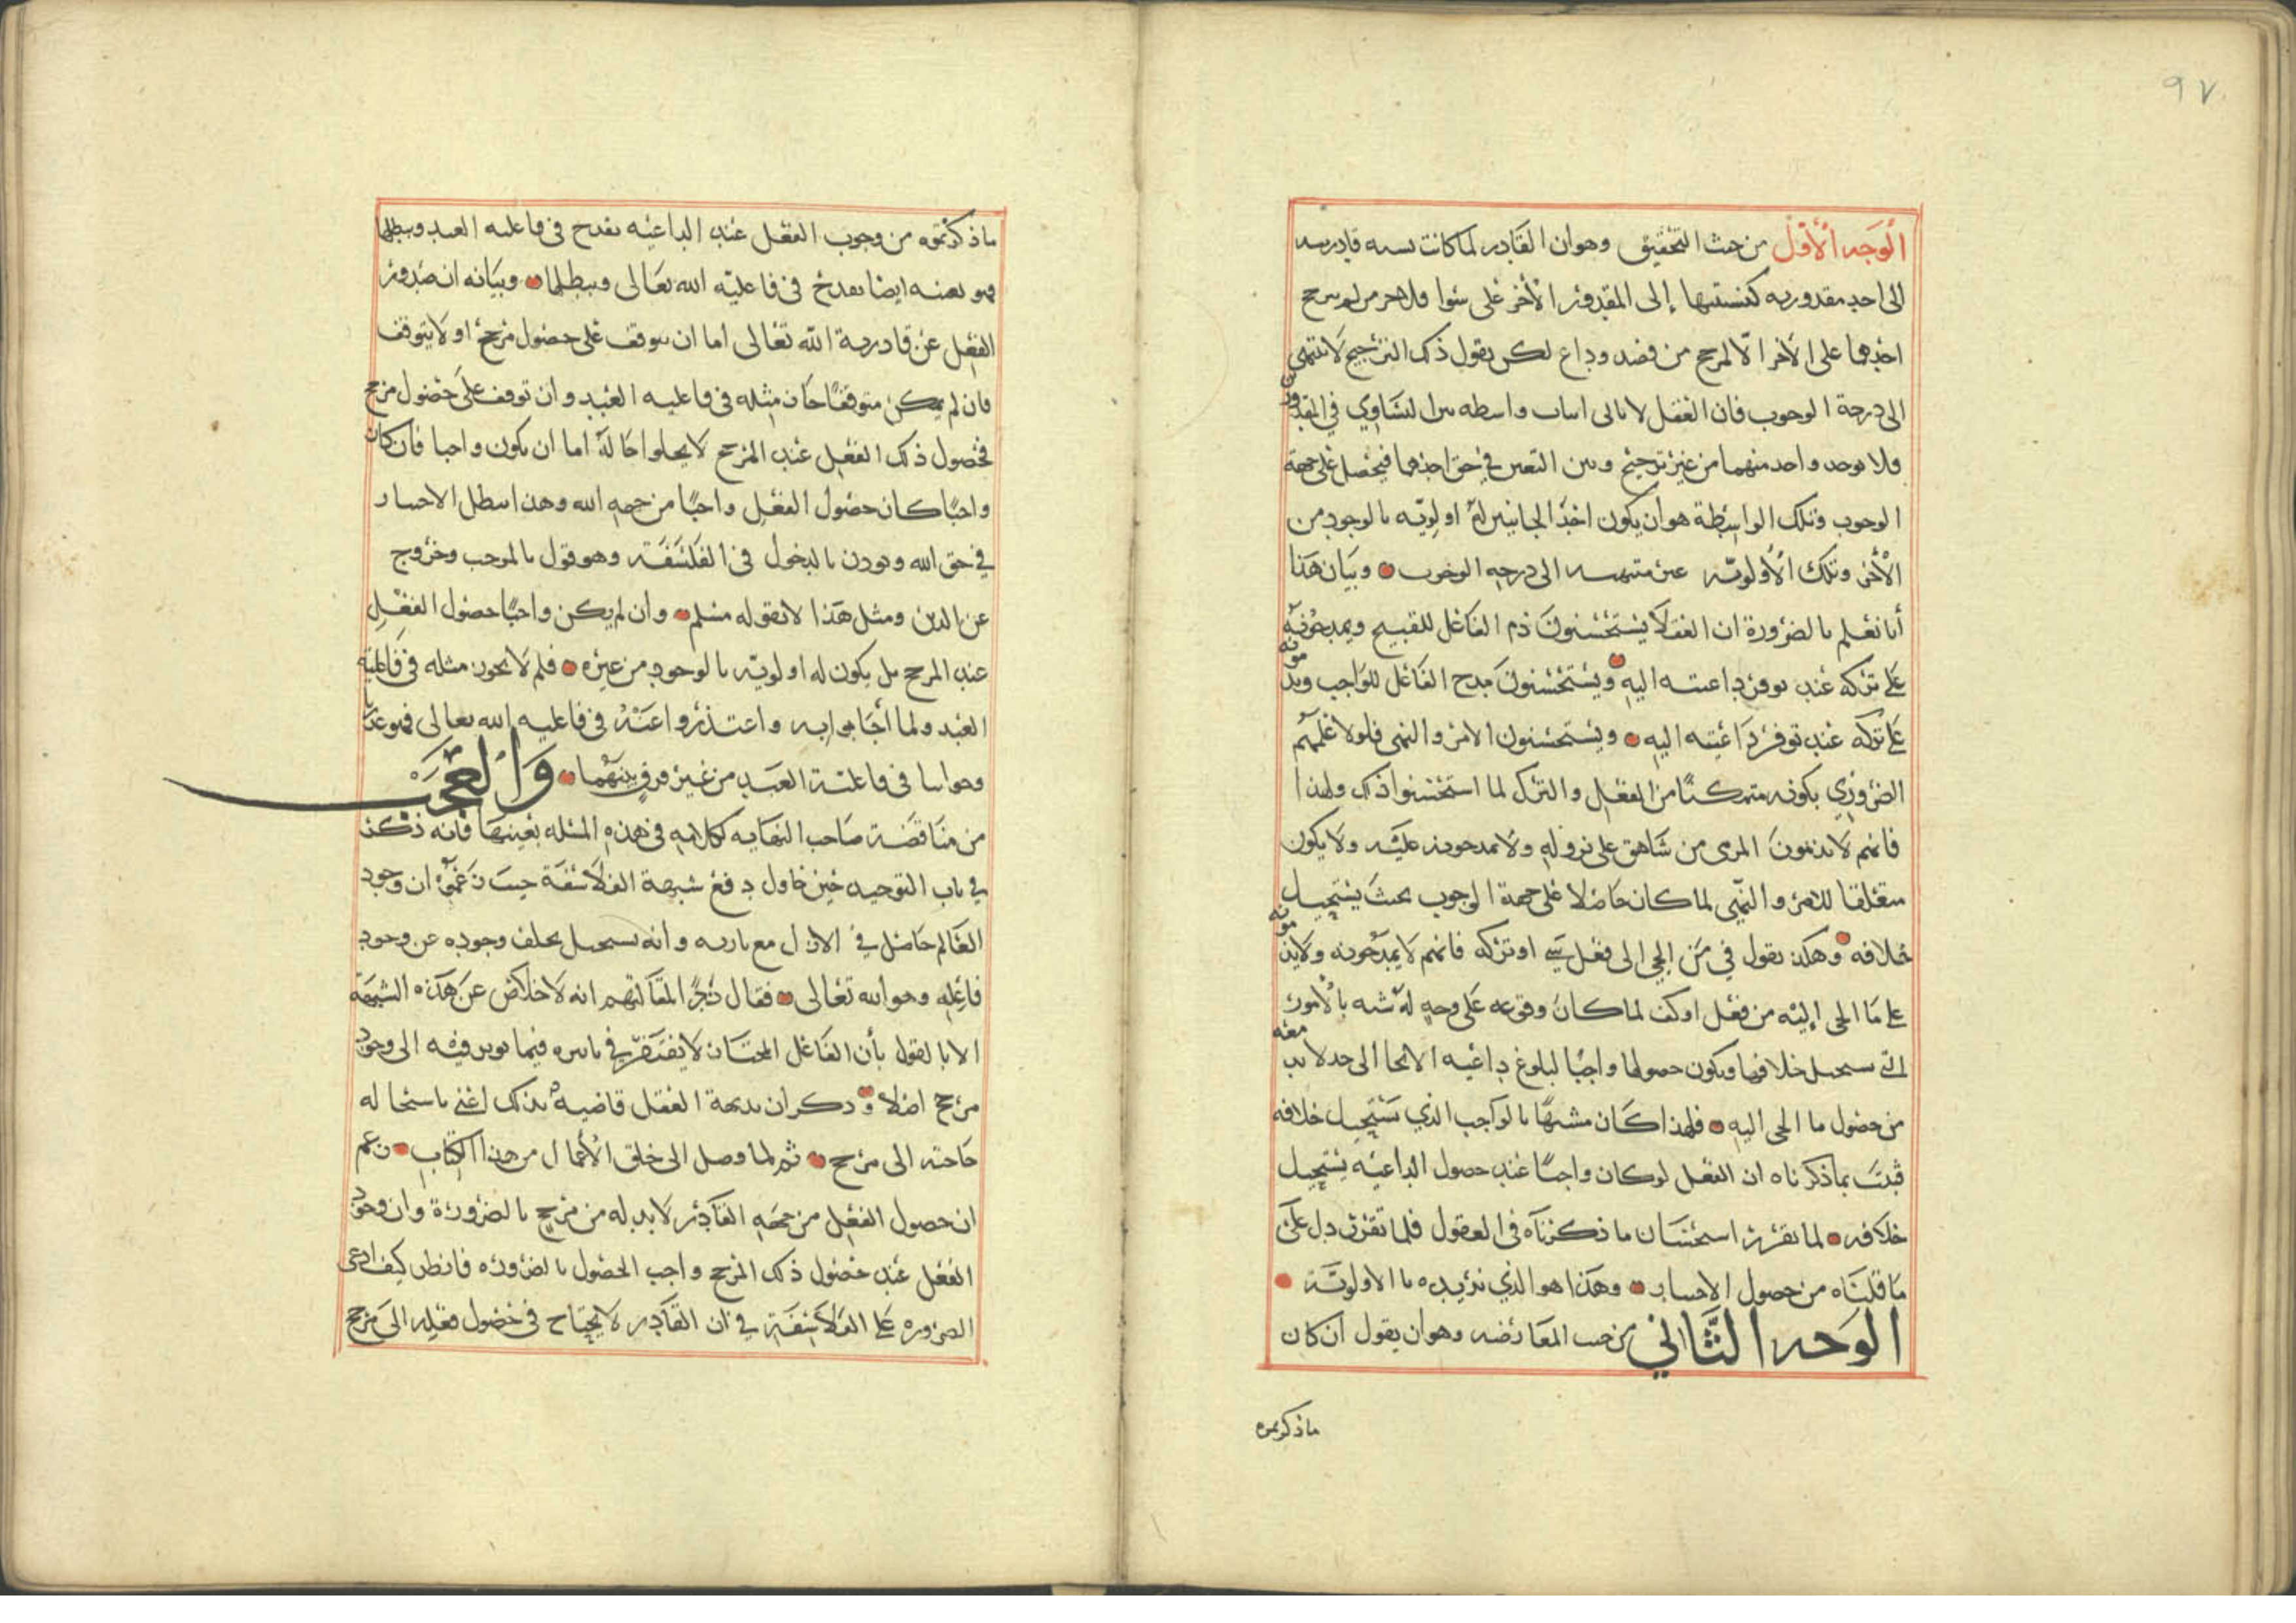 ٩٧
الوجه الأول من حيث التحقيق وهو ان القادر لما كانت نسبه قادريته
الى احد مقدوريه كنسبتها إلى المقدور الأخر على سوا فلا جرم لم يترجح
احدهما على الاخر الا لمرجح من قصد وداع لكن نقول ذلك الترجيح لا ينتهي
الى درجة الوجوب فان العقل لا يابى اثبات واسطه بين التساوي في المقدورين
فلا يوجد واحد منهما من غير ترجيح وبين التعين في حق احدهما فيحصل على جهة
الوجوب وتلك الواسطة هو أن يكون احد الجانبين له اولويه بالوجود من
الأخر وتلك الأولويه غير منتهيه الى درجه الوجوب وبيان هذا
أنا نعلم بالضرورة ان العقلا يستحسنون ذم الفاعل للقبيح ويمدحونه
على تركه عند توفر داعيته اليه ويستحسنون مدح الفاعل للواجب ويذمونه
على تركه عند توفر داعيته اليه ويستحسنون الامر والنهى فلولا علمهم
الضروري بكونه متمكنا من الفعل والترك لما استحسنوا ذلك ولهذا
فانهم لا يذمون المرمى من شاهق على نزوله ولا يمدحونه عليه ولا يكون
متعلقا للامر والنهي لما كان حاصلا على جهة الوجوب بحيث يستحيل
خلافه وهكذا نقول في من الجي الى فعل شي او تركه فانهم لا يمدحونه ولا يذمونه
على ما الجى إليه من فعل او كف لما كان وقوعه على وجه له شبه بالأمور
التي يستحيل خلافها ويكون حصولها واجبا لبلوغ داعيه الالجا الى حد لا بد معه
من حصول ما الجى اليه فلهذا كان مشبها بالواجب الذي يستحيل خلافه
فثبت بما ذكرناه ان الفعل لو كان واجبا عند حصول الداعيه يستحيل
خلافه لما تقرر استحسان ما ذكرناه في العقول فلما تقرر دل على
ما قلناه من حصول الاختيار وهذا هو الذي نريده بالاولويه
الوجه الثاني من حيث المعارضه وهو ان يقول ان كان
ماذكرتموه
ما ذكرتموه من وجوب الفعل عند الداعيه يقدح في فاعليه العبد ويبطلها
فهو بعينه ايضا يقدح في فاعليه الله تعالى ويبطلها وبيانه ان صدور
الفعل عن قادرية الله تعالى اما ان يتوقف على حصول مرجح او لا يتوقف
فان لم يكن متوقفا جاز مثله في فاعليه العبد وان توقف على حصول مرجح
فحصول ذلك الفعل عند المرجح لا يخلوا حاله اما ان يكون واجبا فان كان
واجبا كان حصول الفعل واجبا من جهه الله وهذا يبطل الاختيار
في حق الله ويوذن بالدخول في الفلسفه وهو قول بالموجب وخروج
عن الدين ومثل هذا لا يقوله مسلم وان لم يكن واجبا حصول الفعل
عند المرجح بل يكون له اولويه بالوجود من غيره فلم لا يجوز مثله في فاعليه
العبد ولما أجابوا به واعتذروا عنه في فاعليه الله تعالى فهو عذرنا
وجوابنا في فاعلية العبد من غير فرق بينهما والعجب
من مناقضة صاحب النهايه لكلامه في هذه المسله بعينها فانه ذكر
في باب التوحيد حين حاول دفع شبهة الفلاسفة حيث زعموا ان وجود
العالم حاصل في الازل مع باريه وانه يستحيل تخلف وجوده عن وجود
فاعله وهو الله تعالى فقال ردا لمقالتهم انه لا خلاص عن هذه الشبهة
الا بالقول بأن الفاعل المختار لا يفتقر في تاثيره فيما يوثر فيه الى وجود
مرجح اصلا وذكر ان بديهة العقل قاضيه بذلك اعني باستحاله
حاجته الى مرجح ثم لما وصل الى خلق الأعمال من هذا الكتاب زعم
ان حصول الفعل من جهه القادر لا بد له من مرجح بالضرورة وان وجود
الفعل عند حصول ذلك المرجح واجب الحصول بالضروره فانظر كيف ادعى
الضروره على الفلاسفة في ان القادر لا يحتاج في حصول فعله الى مرجح